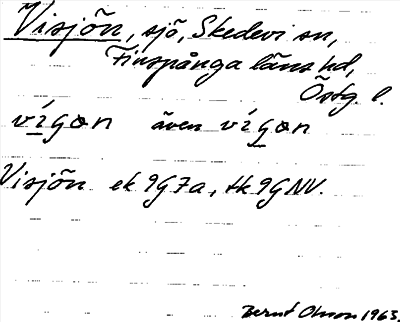 Visjön, sjö, Skedevi sn,
Finspånga läns hd,
Östg. l.
vígøn även vígøn
Visjön ek 9G7a, tk 9G NV.
Bernt Olsson 1963.